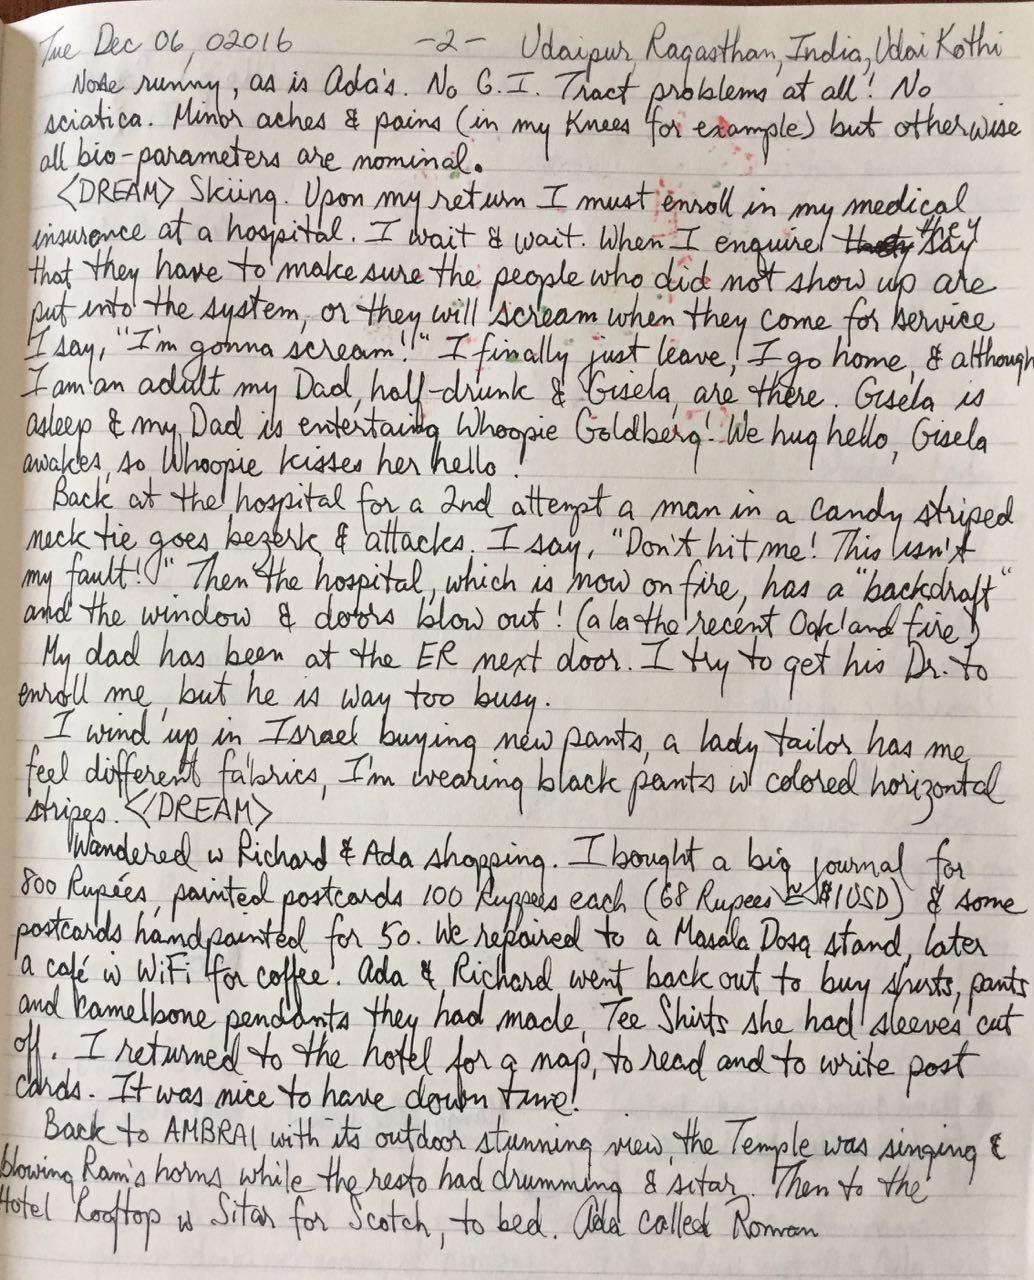 Tue Dec 06, 02016 -2- Udaipur, Ragasthan, India, Udai Kothi
Nose runny, as is Ada's. No G.I. Tract problems at all! No
sciatica. Minor aches & pains (in my Knees for example) but otherwise
all bio-parameters are nominal.
<DREAM> Skiing. Upon my return I must enroll in my medical
insurance at a hospital. I wait & wait. When I enquire they say
that they have to make sure the people who did not show up are
put into the system, or they will scream when they come for service
I say, "I'm gonna scream!!" I finally just leave! I go home, & although
I am an adult my Dad, half-drunk & Gisela, are there. Gisela is
asleep & my Dad is entertaing Whoopie Goldberg! We hug hello, Gisela
awakes, so Whoopie kisses her hello!
Back at the hospital for a 2nd attempt a man in a candy striped
neck tie goes bezerk & attacks. I say, "Don't hit me! This isn't
my fault!" Then the hospital, which is now on fire, has a "backdraft"
and the window & doors blow out! (a la the recent Oakland fire!)
My dad has been at the ER next door. I try to get his Dr. to
enroll me, but he is way too busy.
I wind up in Israel buying new pants, a lady tailor has me
feel different fabrics, I'm wearing black pants w colored horizontal
stripes. </DREAM>
Wandered w Richard & Ada shopping. I bought a big journal for
800 Rupees, painted postcards 100 Ruppees each (68 Rupees ≅ $1USD) & some
postcards handpainted for 50. We repaired to a Masala Dosa stand, later
a café w WiFi for coffee! Ada & Richard went back out to buy shirts, pants
and Kamelbone pendants they had made, Tee Shirts she had sleeves cut
off. I returned to the hotel for a nap, to read and to write post
cards. It was nice to have down time!
Back to AMBRAI with its outdoor stunning view, the Temple was singing &
blowing Ram's horns while the resto had drumming & sitar. Then to the
Hotel Rooftop w Sitar for Scotch, to bed. Ada called Roman